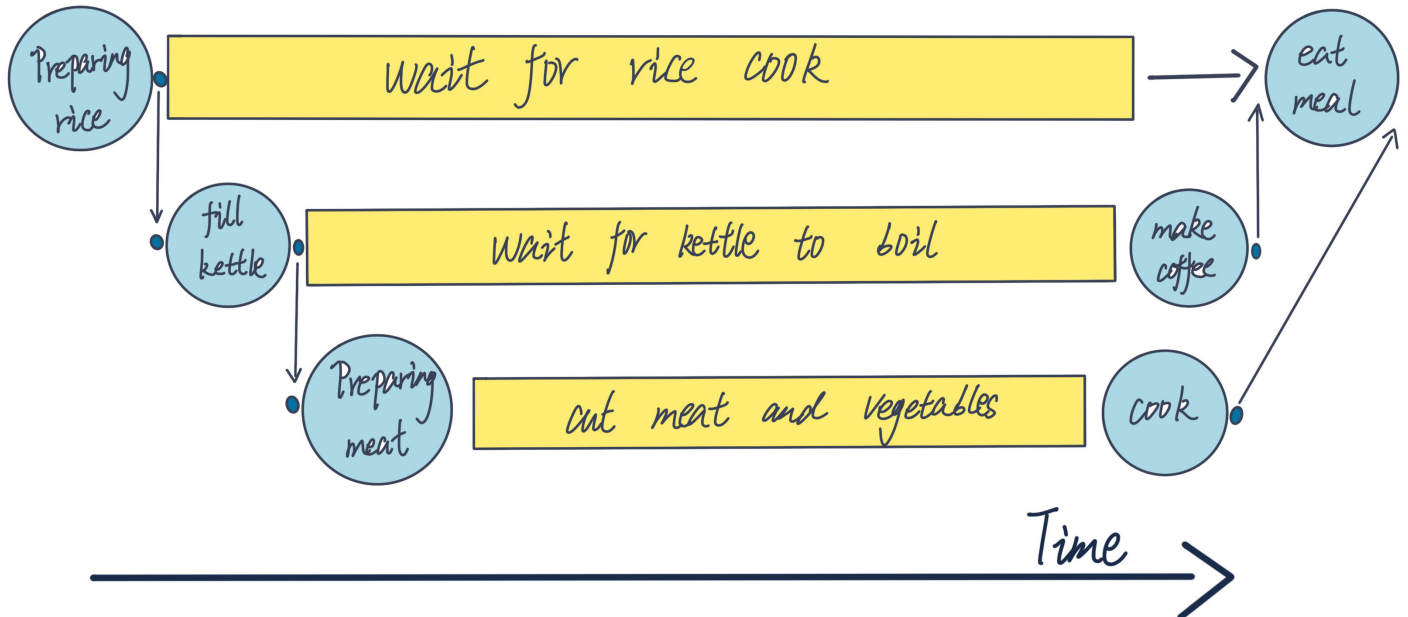 Preparing
rice
wait for rice cook
eat
meal
fill
kettle
wait for kettle to boil
make
coffee
Preparing
meat
cut meat and vegetables
cook
Time